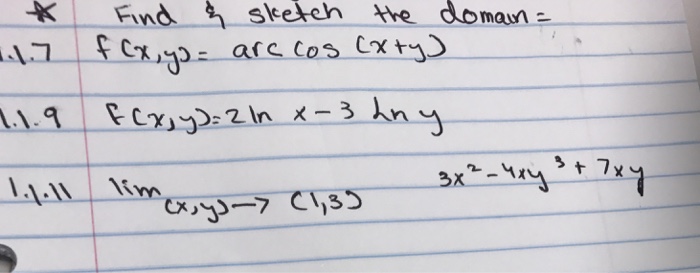 * Find & sketch the domain =
1.1.7 f(x,y) = arc cos (x+y)
1.1.9 f(x,y) = 2 ln x - 3 ln y
1.1.11 lim (x,y) → (1,3) 3x² - 4xy³ + 7xy